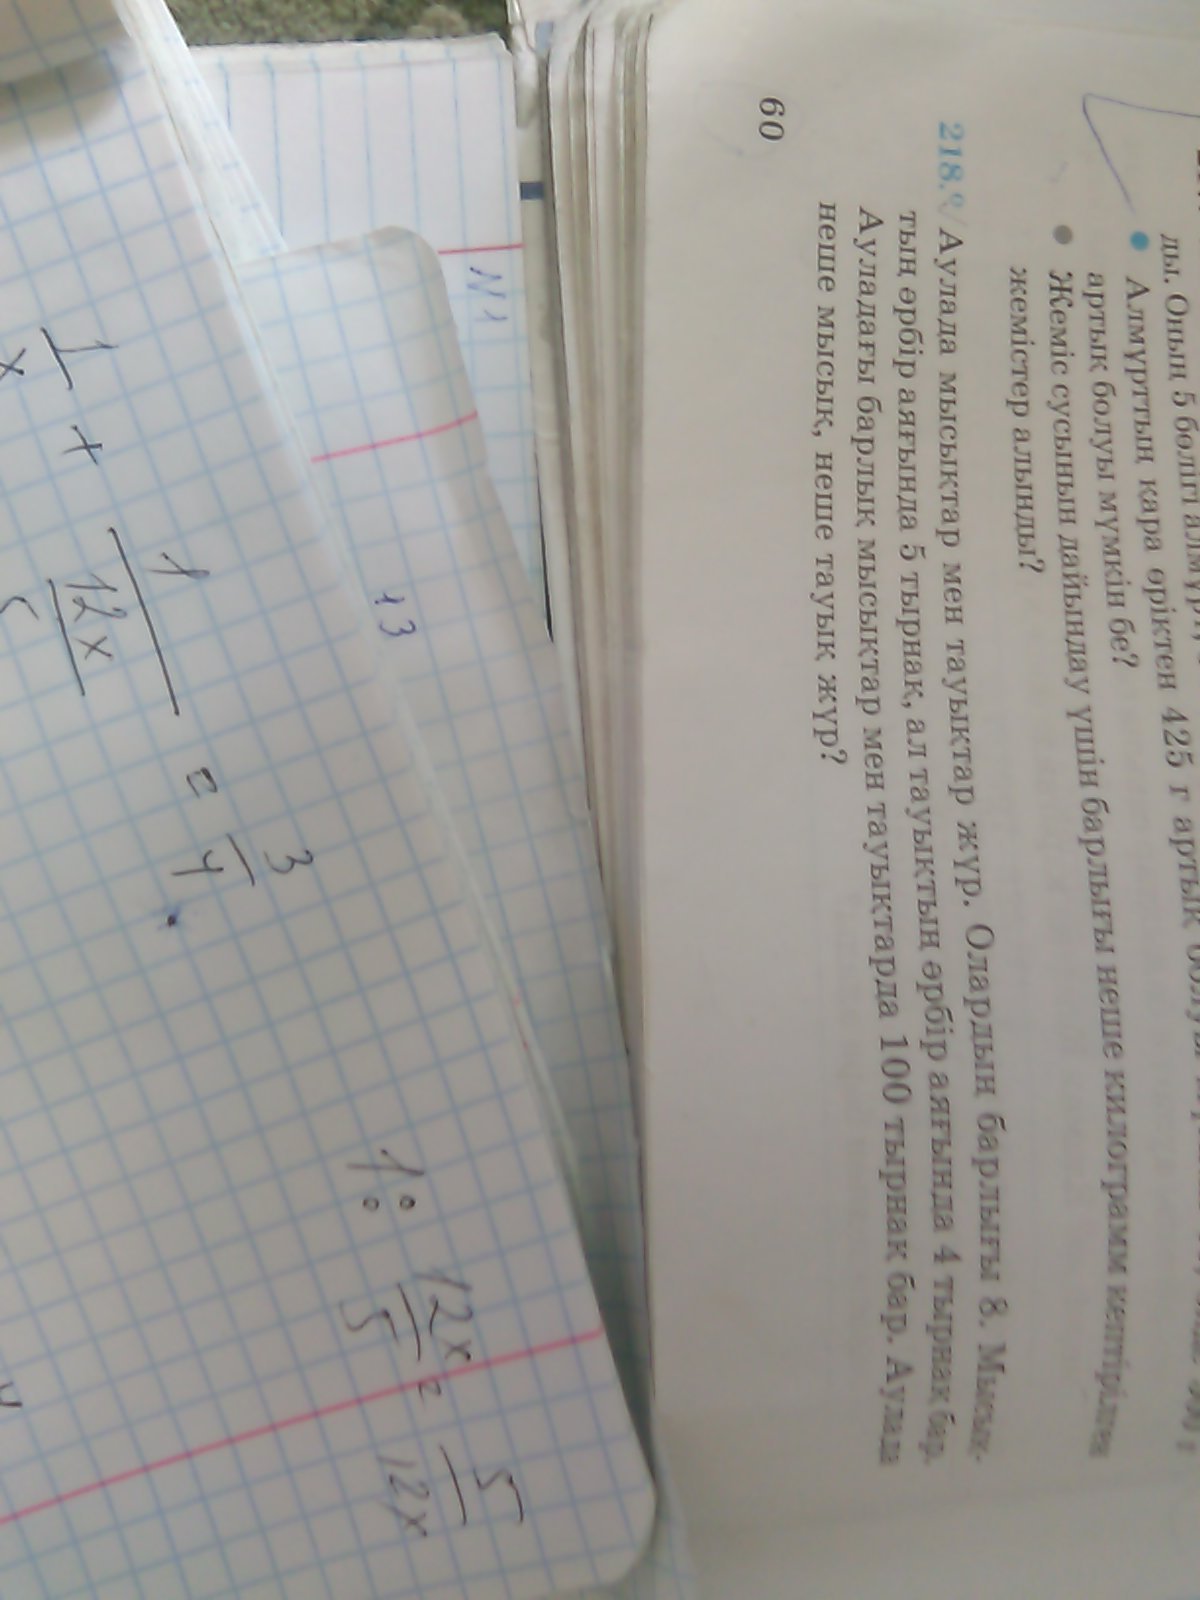 ды. Оның 5 бөлігі
Алмұрттың қара өріктен 425 г артық
артық болуы мүмкін бе?
Жеміс сусынын дайындау үшін барлығы неше килограмм кептірілген
жемістер алынды?
218. Аулада мысықтар мен тауықтар жүр. Олардың барлығы 8. Мысық-
тың әрбір аяғында 5 тырнақ, ал тауықтың әрбір аяғында 4 тырнақ бар.
Ауладағы барлық мысықтар мен тауықтарда 100 тырнақ бар. Аулада
неше мысық, неше тауық жүр?
60
N 1
13
1/x + 1/(12x/5) = 3/4.
1 : 12x/5 = 5/12x